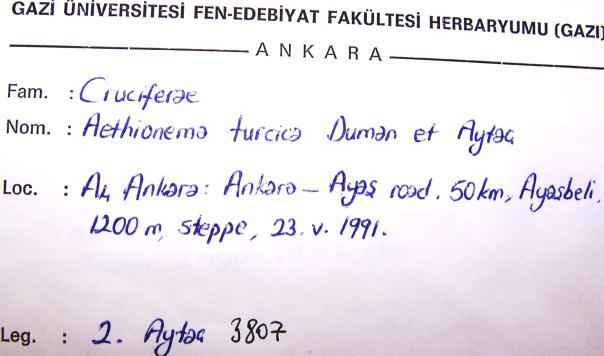 GAZİ ÜNİVERSİTESİ FEN-EDEBİYAT FAKÜLTESİ HERBARYUMU (GAZI)
ANKARA
Fam. : Cruciferae
Nom. : Aethionema turcica Duman et Aytaç
Loc. : A4 Ankara: Ankara – Ayaş road. 50 km, Ayaşbeli,
1200 m, steppe, 23. v. 1991.
Leg. : Z. Aytaç 3807